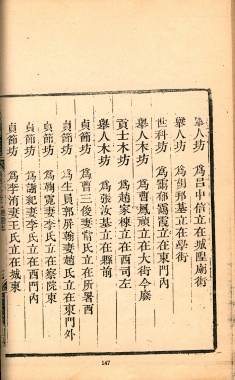 舉人坊　為呂中信立在城隍廟街
舉人坊　為胡邦基立在學街
世科坊　為雷郁靄霞立在東門內
舉人木坊　為曹鳳頎立在大街今廢
貢士木坊　為趙家棟立在西司左
舉人木坊　為張汝基立在縣前
貞節坊　為曹三俊妻常氏立在所署西
貞節坊　為生員郭屏翰妻趙氏立在東門外
貞節坊　為鞠寬妻李氏立在察院東
貞節坊　為蕭紀妻李氏立在西門內
貞節坊　為李洧妻王氏立在城東
147